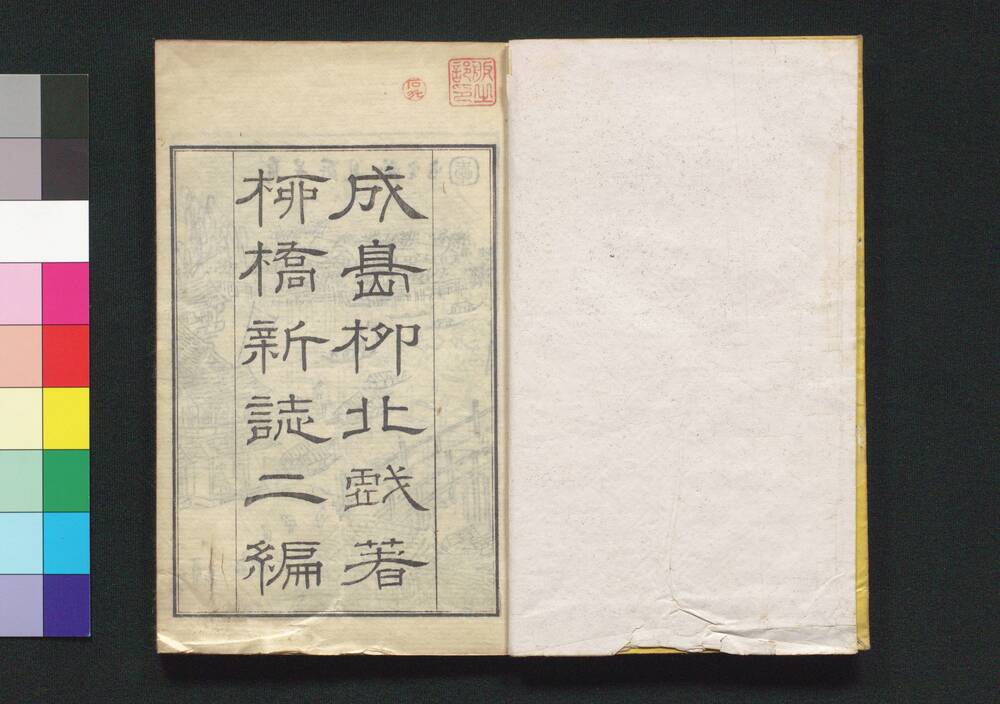 成島柳北戯著
柳橋新誌二編